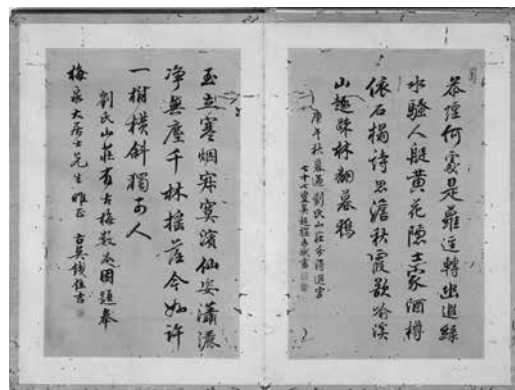 徑何處是蘿逕轉幽遐綠
水騷人艇黃花隱士家酒樽
依石榻詩思澹秋霞欲溪
山趣疎林翻暮鴉
庚午秋暮過劉氏山莊分得遐字
七十七叟吳趨書
玉立寒烟寂寞濱仙姿瀟灑
淨無塵千林搖落今如許
一樹橫斜獨可人
劉氏山莊有古梅數本因題奉
梅泉大居士先生雅正 古吳錢